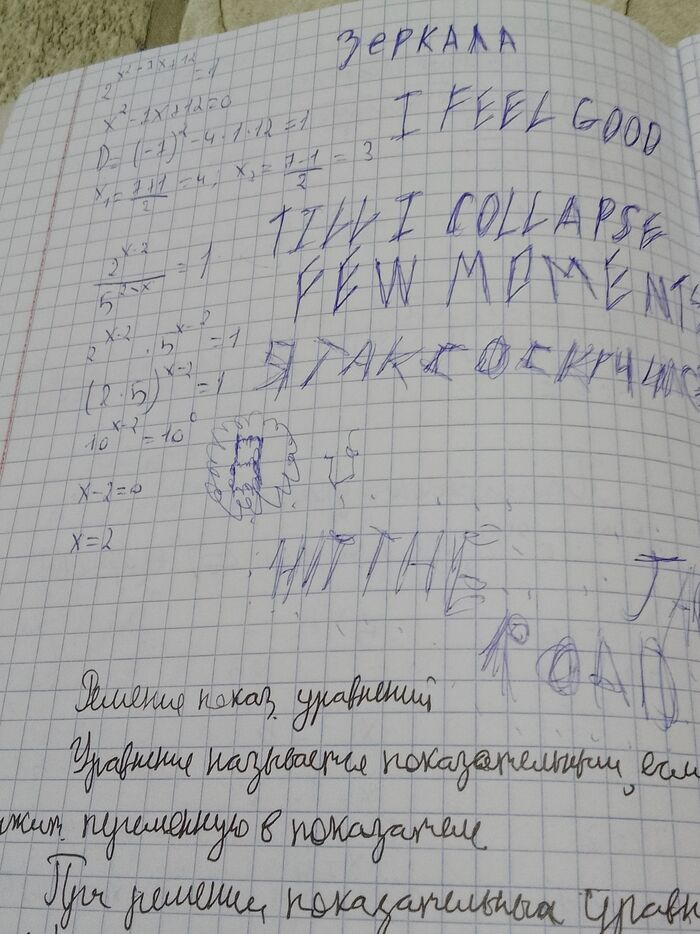 ЗЕРКАЛА
2^(x²-7x+12) = 1
x²-7x+12=0
I FEEL GOOD
D=(-7)²-4·1·12=1
x₁=(7+1)/2=4; x₂=(7-1)/2=3
TILL I COLLAPSE
FEW MOMENTS
2^(x-2)/5^(2-x)=1
Я ТАК СОСКУЧИЛСЯ
2^(x-2)·5^(x-2)=1
(2·5)^(x-2)=1
10^(x-2)=10⁰
x-2=0
x=2
HIT THE
JAC
ROAD
Решение показ. уравнений
Уравнение называется показательным, если
жит переменную в показателе
При решении показательных уравн